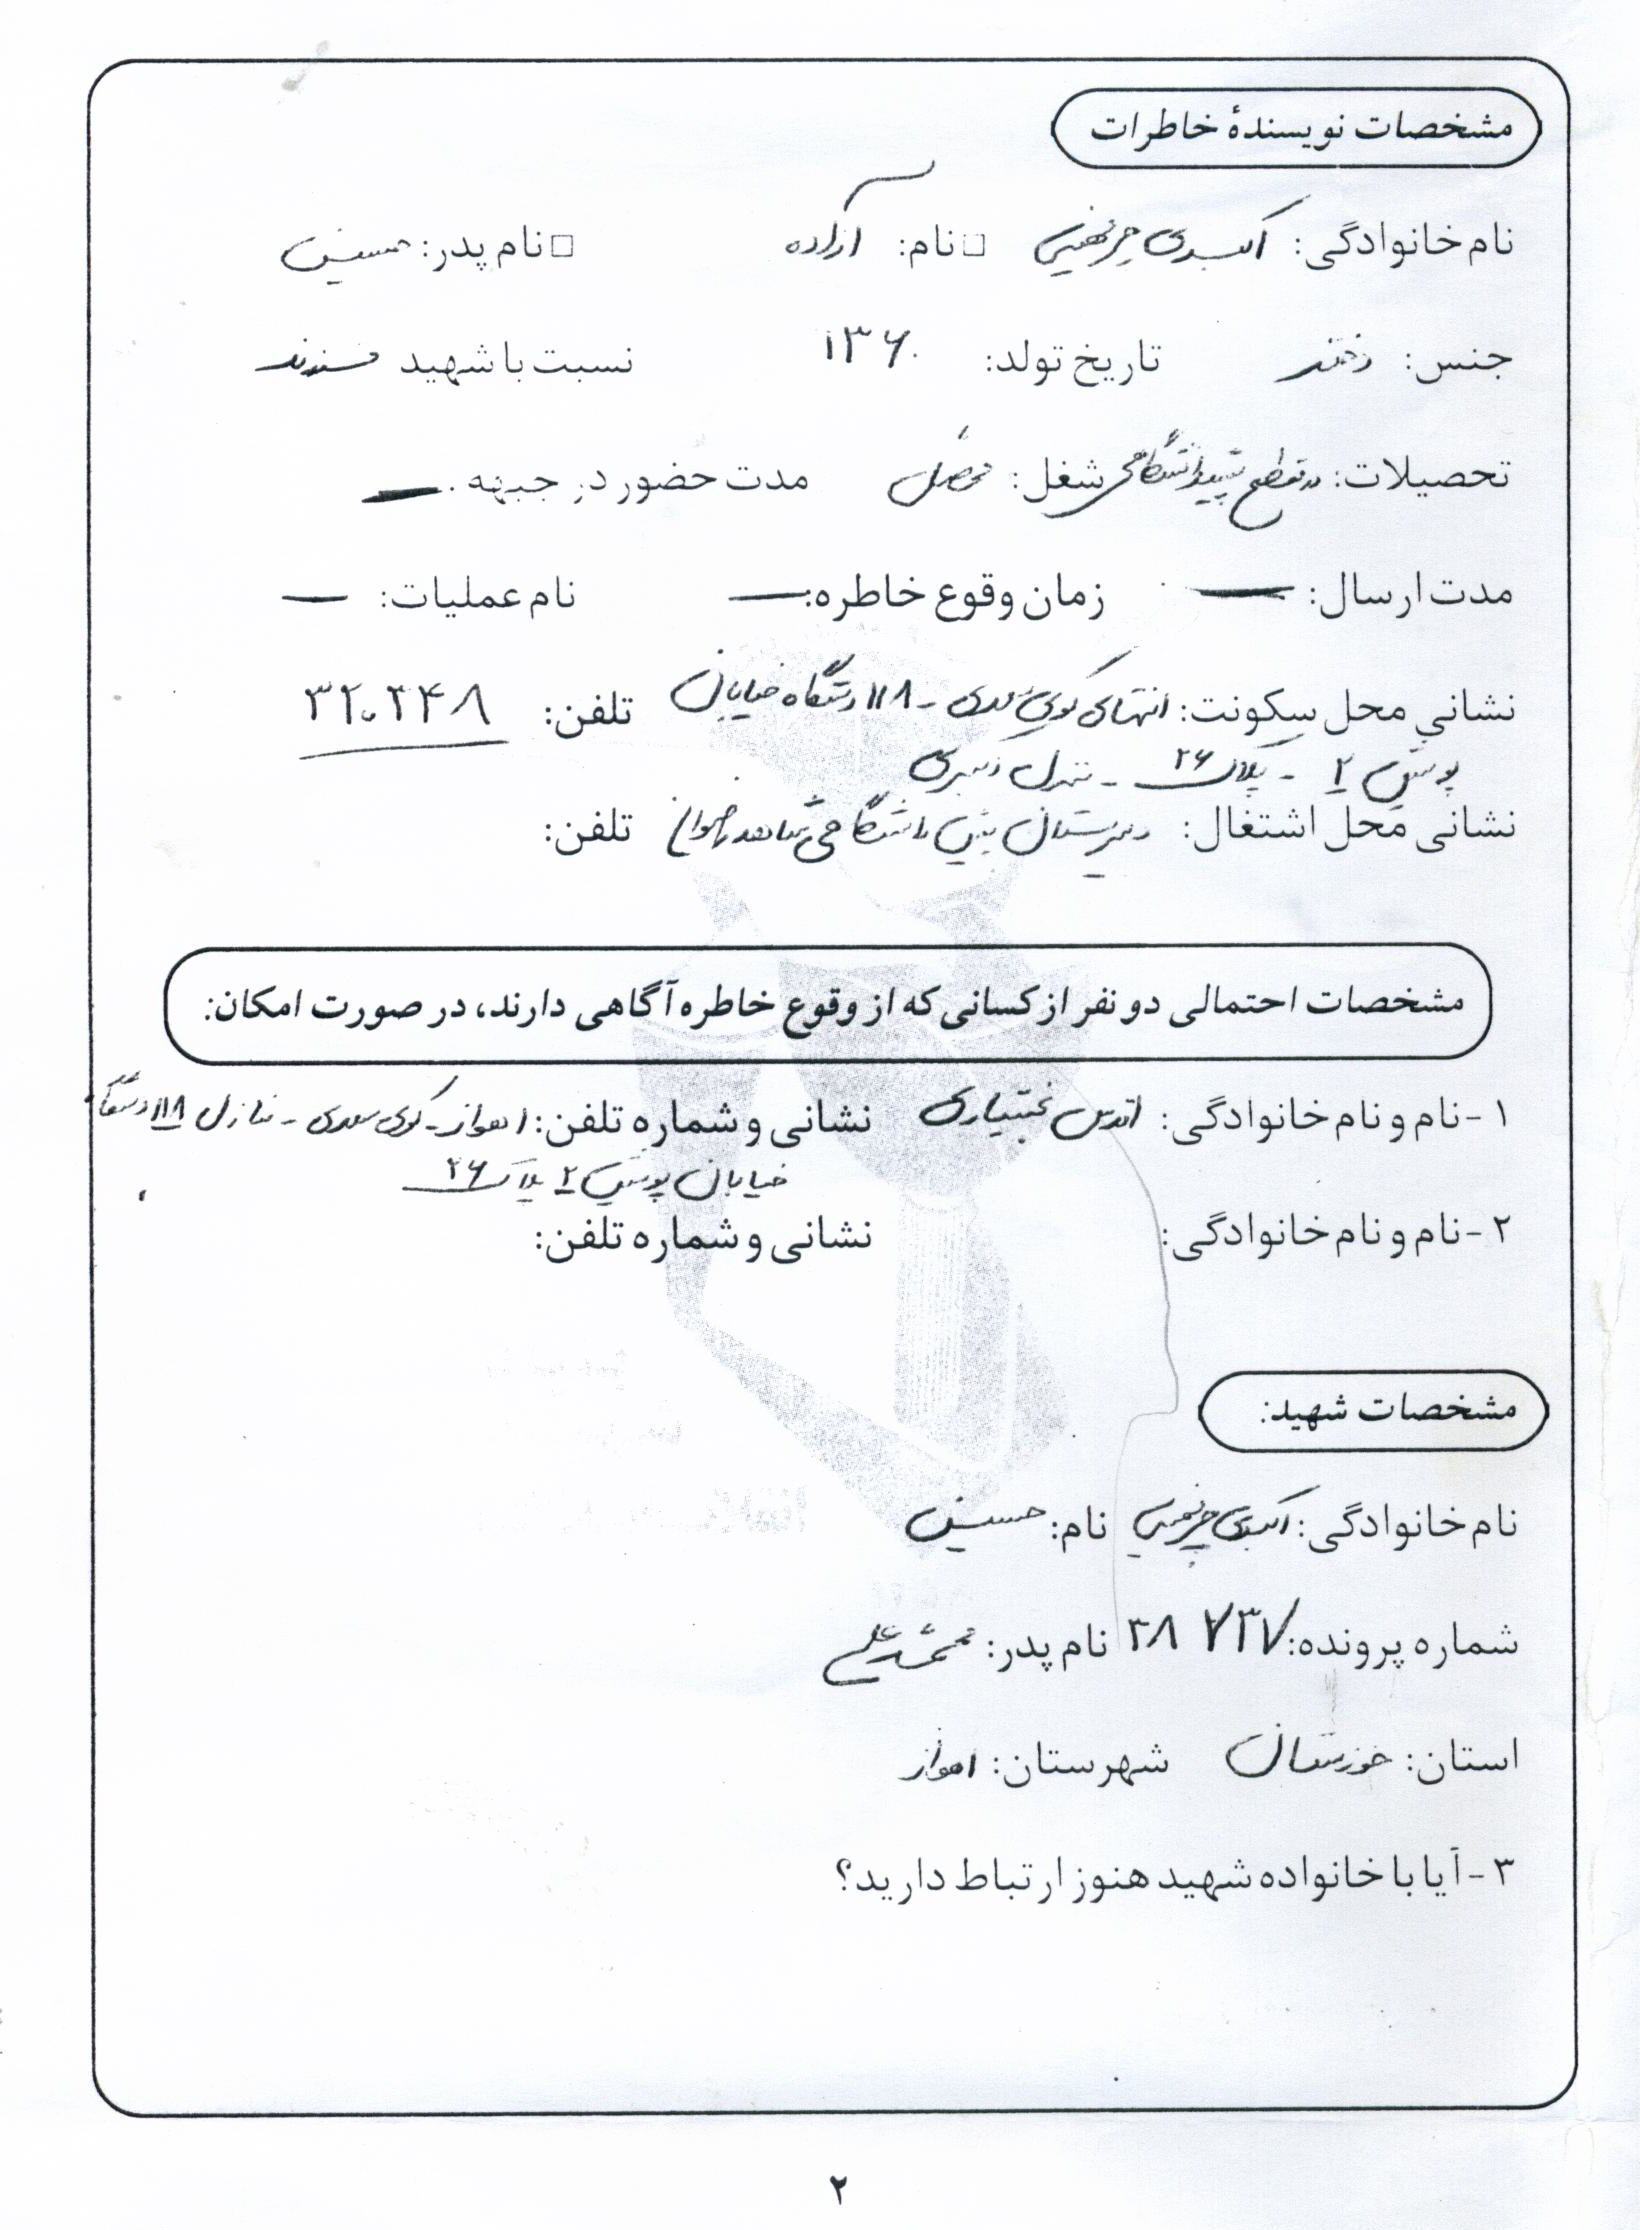 مشخصات نویسندهٔ خاطرات
نام خانوادگی: اسدی □ نام: آزاده □ نام پدر: حسین
جنس: دختر تاریخ تولد: ۱۳۶۰ نسبت با شهید فرزند
تحصیلات: مقطع پیش‌دانشگاهی شغل: محصل مدت حضور در جبهه. —
مدت ارسال: — زمان وقوع خاطره: — نام عملیات: —
نشانی محل سکونت: انتهای کوی سعدی - ۱۱۸ دستگاه خیابان تلفن: ۳۲۰۲۴۸
۲ - پلاک ۲۶ - منزل
نشانی محل اشتغال: دبیرستان پیش دانشگاهی شاهد تلفن:
مشخصات احتمالی دو نفر از کسانی که از وقوع خاطره آگاهی دارند، در صورت امکان:
۱- نام و نام خانوادگی: بختیاری نشانی و شماره تلفن: اهواز - کوی سعدی - منازل ۱۱۸ دستگاه
خیابان ۲ پلاک ۲۶
۲- نام و نام خانوادگی: نشانی و شماره تلفن:
مشخصات شهید:
نام خانوادگی: اسدی نام: حسین
شماره پرونده: ۳۸۷۳۷ نام پدر: محمدعلی
استان: خوزستان شهرستان: اهواز
۳- آیا با خانواده شهید هنوز ارتباط دارید؟
۲